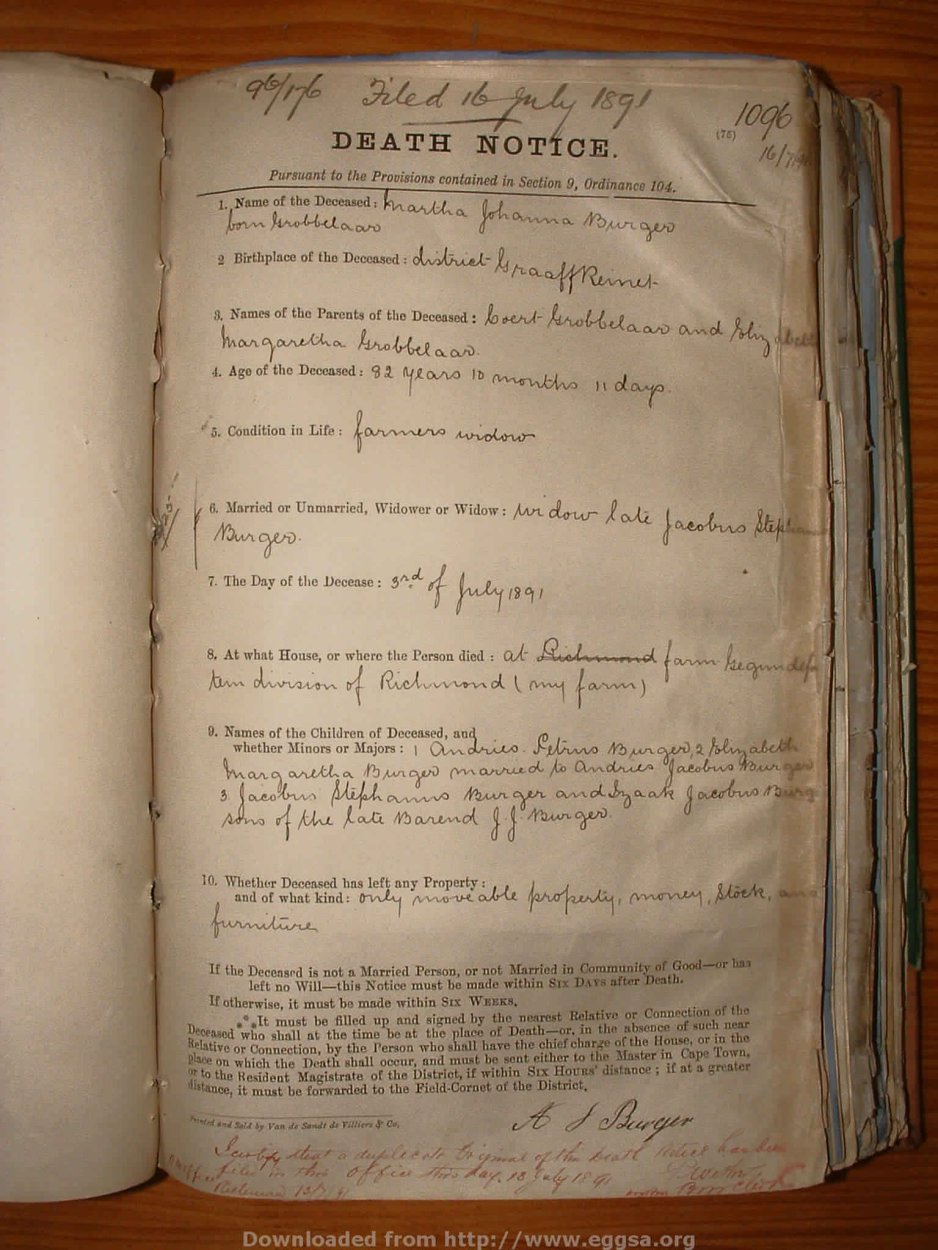 96/176 Filed 16 July 1891
1096
(75)
16/7/91
DEATH NOTICE.
Pursuant to the Provisions contained in Section 9, Ordinance 104.
1. Name of the Deceased: Martha Johanna Burger
born Grobbelaar
2 Birthplace of the Deceased: district Graaff Reinet
3. Names of the Parents of the Deceased: Coert Grobbelaar and Elizabeth
Margaretha Grobbelaar.
4. Age of the Deceased: 82 years 10 months 11 days.
5. Condition in Life: farmers widow
6. Married or Unmarried, Widower or Widow: widow late Jacobus Stephanus
Burger.
7. The Day of the Decease: 3rd of July 1891
8. At what House, or where the Person died: at Richmond farm
division of Richmond (my farm)
9. Names of the Children of Deceased, and
whether Minors or Majors: 1 Andries Petrus Burger, 2 Elizabeth
Margaretha Burger married to Andries Jacobus Burger
3 Jacobus Stephanus Burger and Izaak Jacobus Burger
sons of the late Barend J. J. Burger.
10. Whether Deceased has left any Property:
and of what kind: only moveable property, money, Stock, and
furniture
If the Deceased is not a Married Person, or not Married in Community of Good—or has
left no Will—this Notice must be made within SIX DAYS after Death.
If otherwise, it must be made within SIX WEEKS.
*** It must be filled up and signed by the nearest Relative or Connection of the
Deceased who shall at the time be at the place of Death—or, in the absence of such near
Relative or Connection, by the Person who shall have the chief charge of the House, or in the
place on which the Death shall occur, and must be sent either to the Master in Cape Town,
or to the Resident Magistrate of the District, if within SIX HOURS' distance; if at a greater
distance, it must be forwarded to the Field-Cornet of the District.
Printed and Sold by Van de Sandt de Villiers & Co.
A J Burger
I certify that a duplicate Original of this Death Notice has been
filed in this Office this day. 13 July 1891
Richmond 13/7/91
Downloaded from http://www.eggsa.org